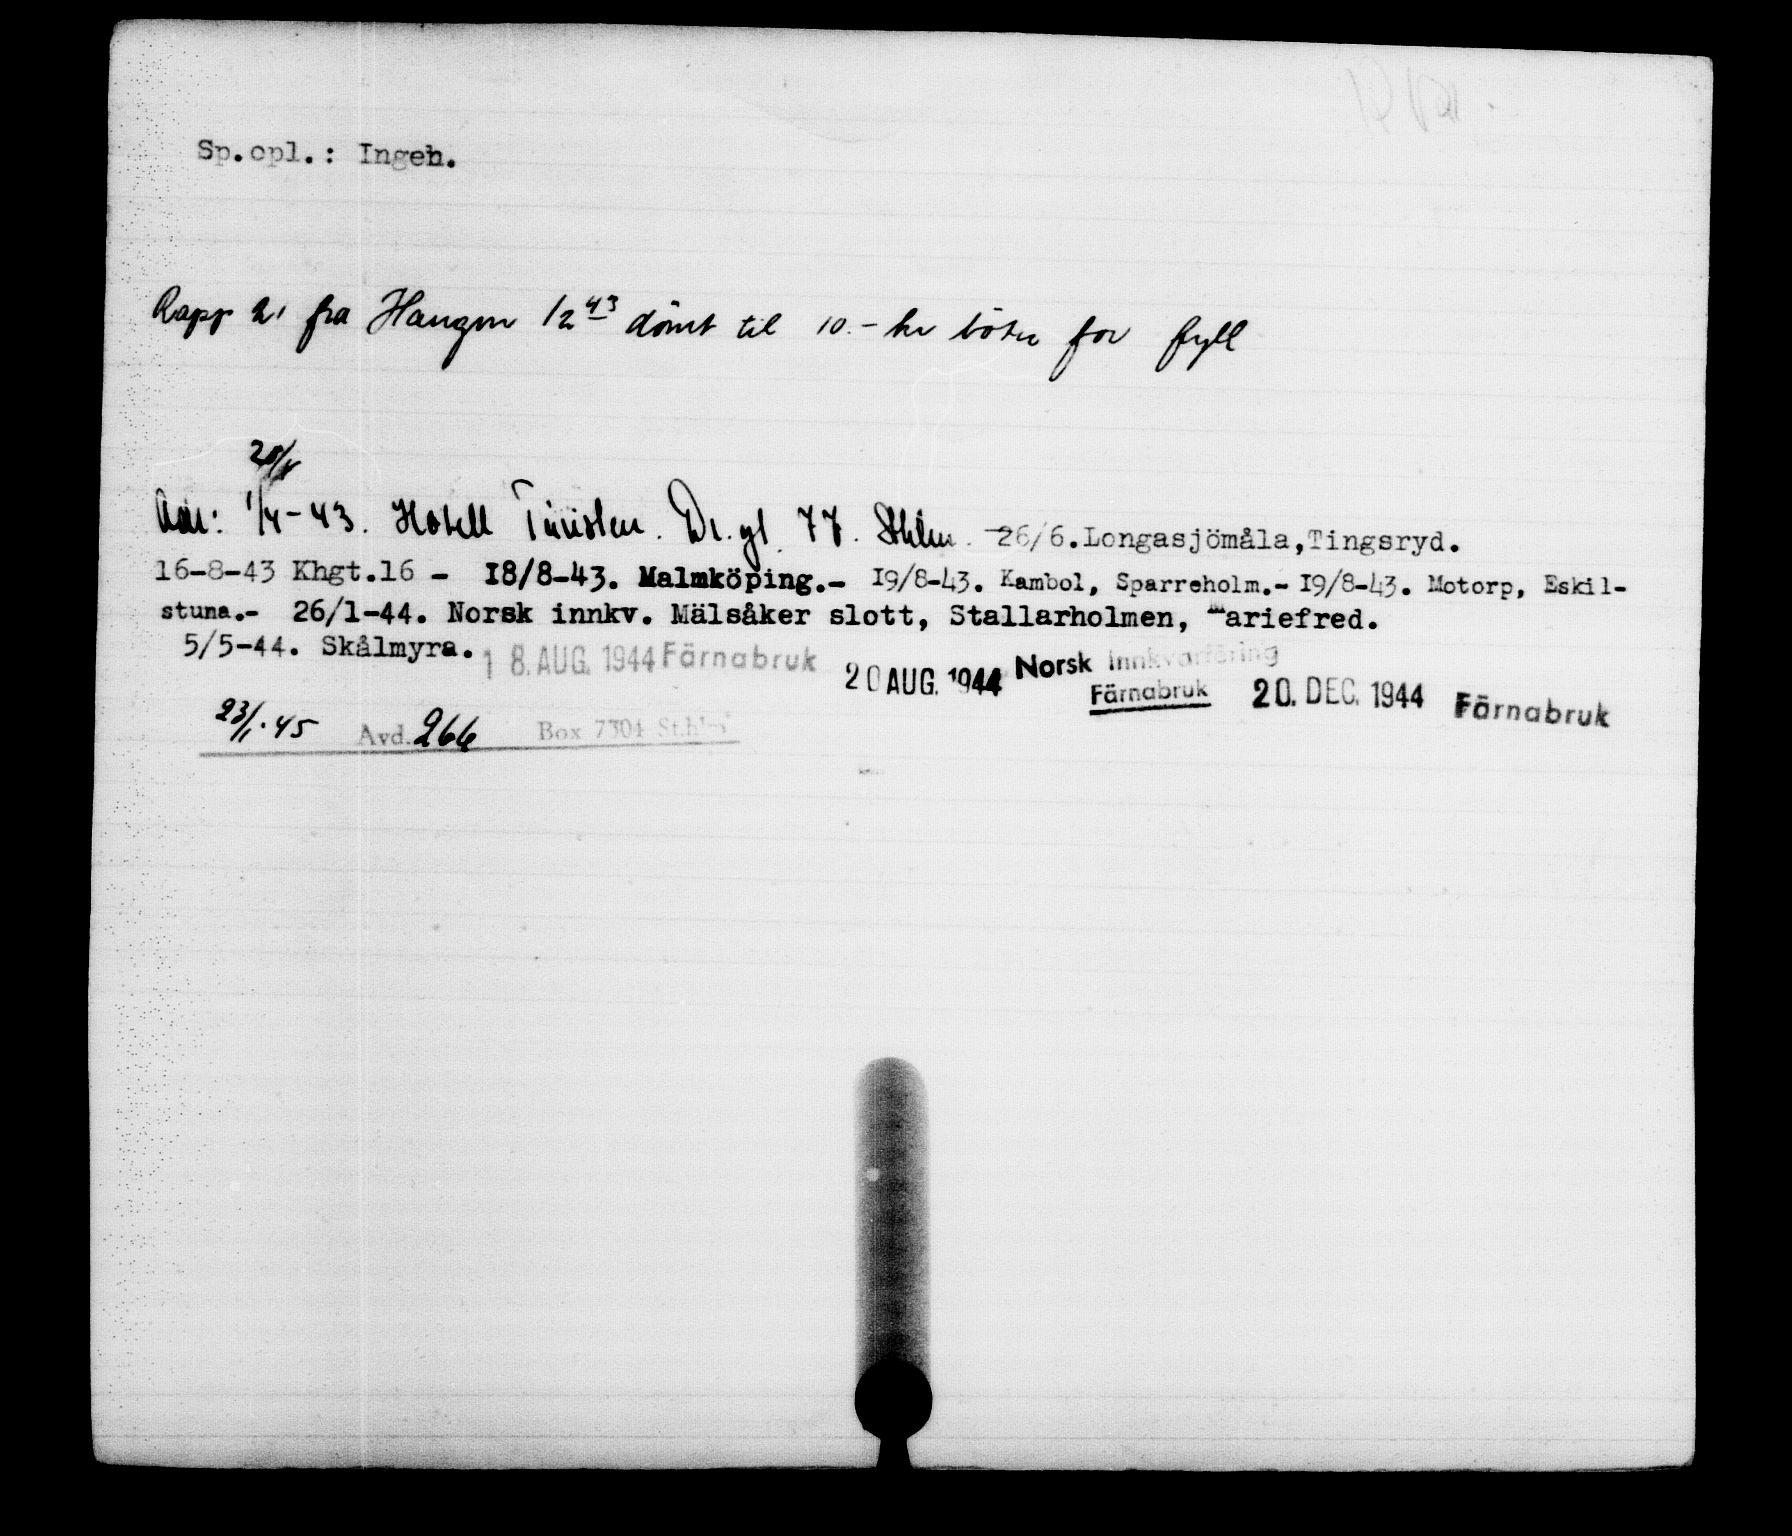 Sp.opl.: Ingen.
Rapp 21 fra Haugen 12 43 dömt til 10.- kr böter for fyll
20/4
Adr: 1/4-43. Hotell Turisten. Dr.gt. 77. Sthlm. -26/6.Longasjömåla,Tingsryd.
16-8-43 Khgt.16 - 18/8-43. Malmköping.- 19/8-43. Kambol, Sparreholm.- 19/8-43. Motorp, Eskil-
stuna.- 26/1-44. Norsk innkv. Mälsåker slott, Stallarholmen, Mariefred.
5/5-44. Skålmyra. 18. AUG. 1944 Färnabruk 20 AUG. 1944 Norsk innkvartering
Färnabruk 20. DEC. 1944 Färnabruk
23/1.45 Avd. 266 Box 7304 Sthlm